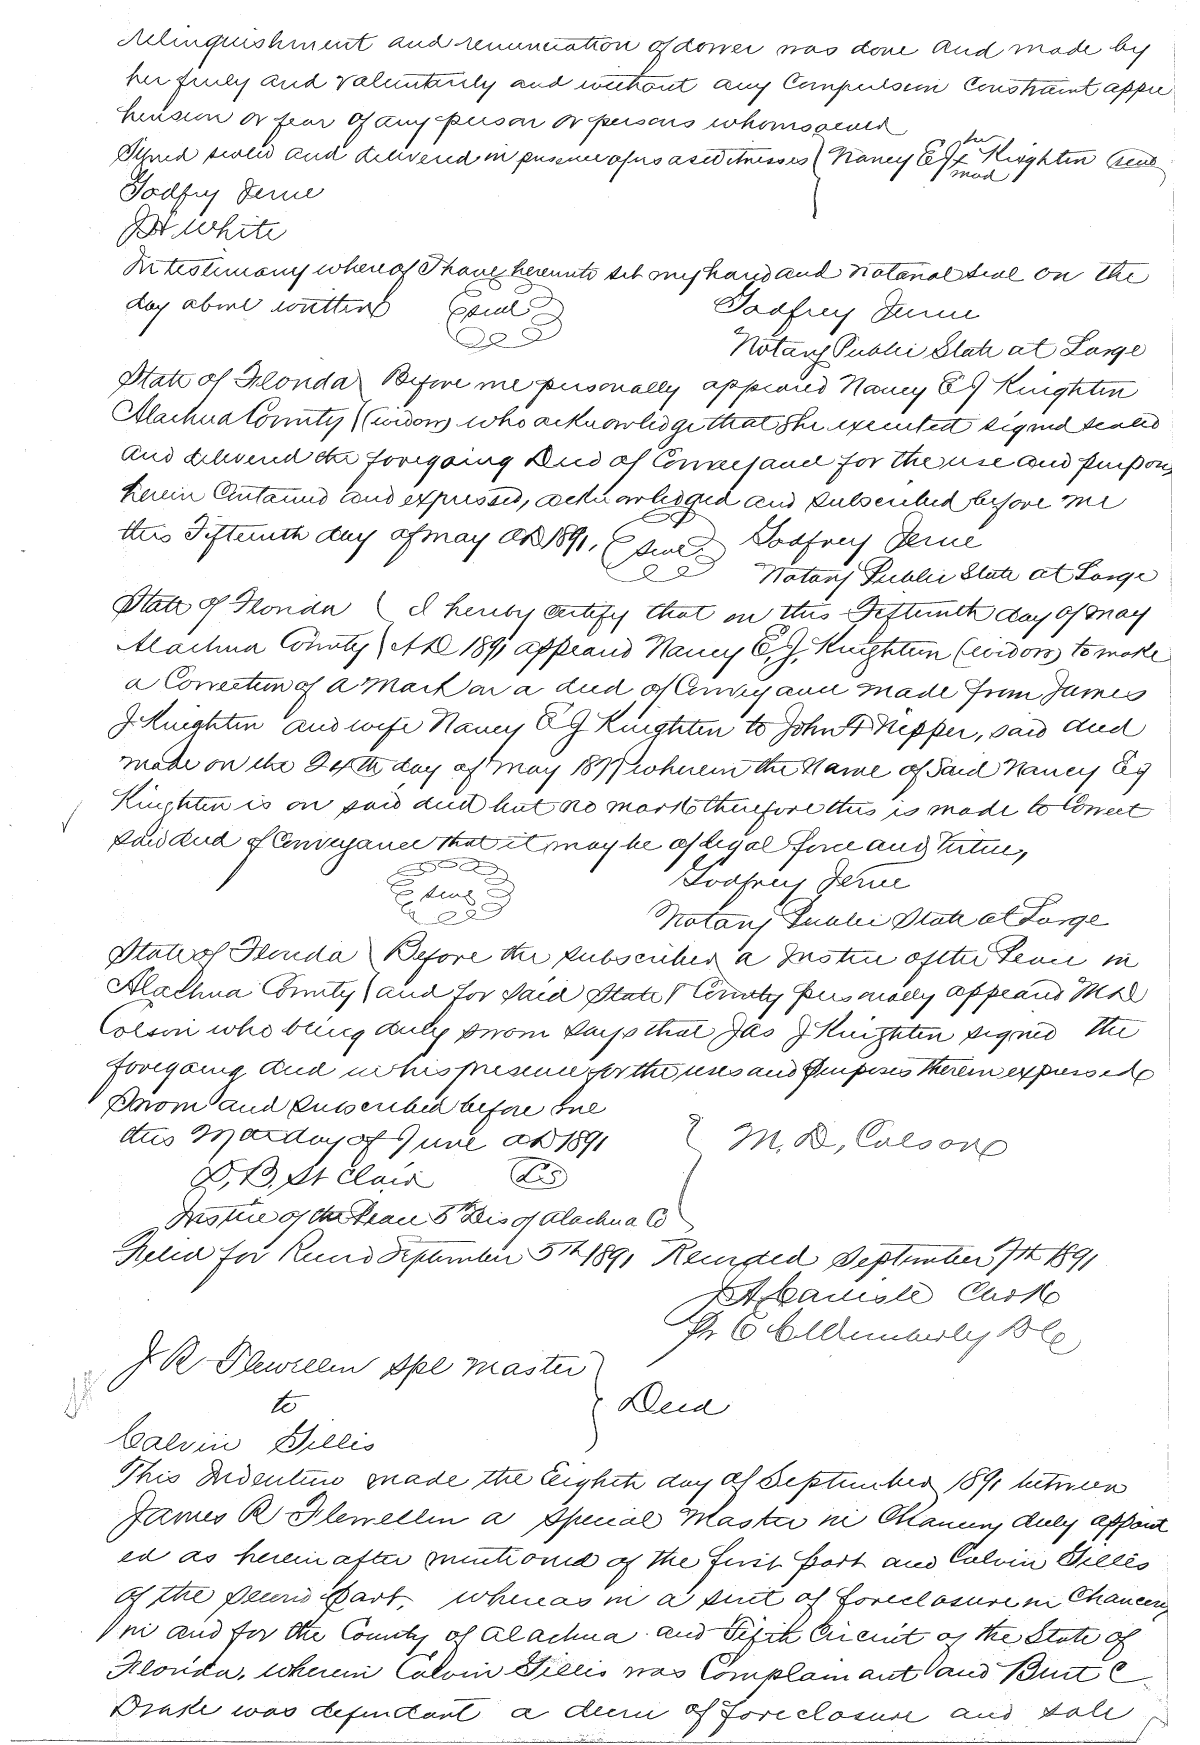 relinquishment and renunciation of dower was done and made by
her freely and voluntarily and without any Compulsion Constraint appre
hension or fear of any person or persons whomsoever
Signed sealed and delivered in presence of us as witnesses ( Nancy E J her x mark Knighten seal
Godfrey
J H White
In testimony whereof I have hereunto set my hand and Notarial Seal on the
day above written seal Godfrey
Notary Public State at Large
State of Florida ) Before me personally appeared Nancy E J Knighten
Alachua County ) (widow) who acknowledge that she executed signed sealed
and delivered the foregoing Deed of Conveyance for the use and purpose
herein Contained and expressed, acknowledged and subscribed before me
this Fifteenth day of may AD 1891, seal Godfrey
Notary Public State at Large
State of Florida ( I hereby certify that on this Fifteenth day of may
Alachua County ) AD 1891 appeared Nancy E, J, Knighten (widow) to make
a Correction of a Mark on a deed of Conveyance made from James
J Knighten and wife Nancy E J Knighten to John Nipper, said deed
made on the day of May wherein the Name of Said Nancy E J
Knighten is on said deed but no mark therefore this is made to Correct
said deed of Conveyance that it may be of legal force and Virtue,
seal Godfrey
Notary Public State at Large
State of Florida ) Before the subscriber a Justice of the Peace in
Alachua County ) and for said State & County personally appeared M D
Colson who being duly sworn says that Jas J Knighten signed the
foregoing deed in his presence for the uses and purposes therein expressed
Sworn and subscribed before me
this day of June AD 1891 M. D, Colson
D, B, St Clair LS
Justice of the Peace 5th Dis of Alachua Co
Filed for Record September 5th 1891 Recorded September 7th 1891
J A Carlisle Clerk
Pr D C
J R Flewellin Spl Master
to Deed
Calvin Gillis
This Indenture made the Eighth day of September 1891 between
James R Flewellin a Special Master in Chancery duly appoint
ed as herein after mentioned of the first part and Calvin Gillis
of the second part, whereas in a suit of foreclosure in Chancery
in and for the County of Alachua and Fifth Circuit of the State of
Florida, wherein Calvin Gillis was Complainant and Burt C
Drake was defendant a decree of foreclosure and sale